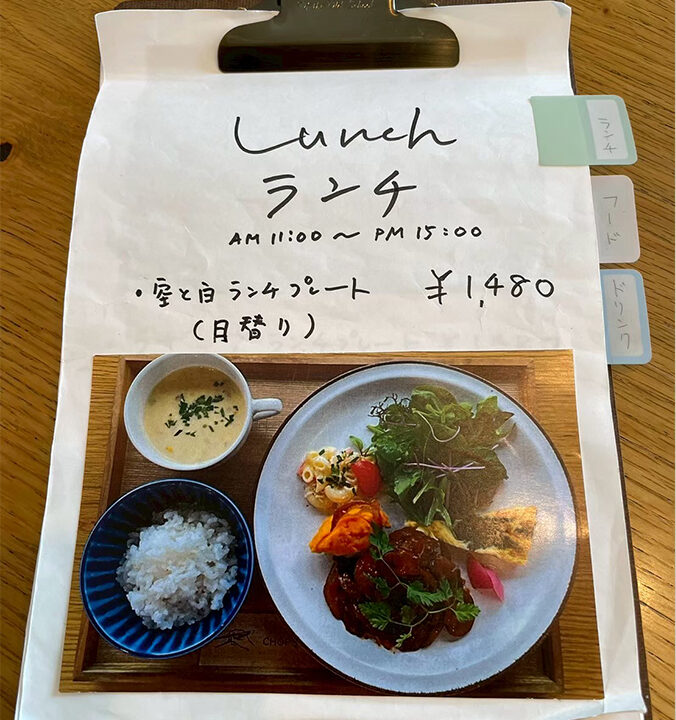 Lunch
ランチ
AM 11:00 〜 PM 15:00
・空と白 ランチプレート ¥1,480
(月替り)
ランチ
フード
ドリンク